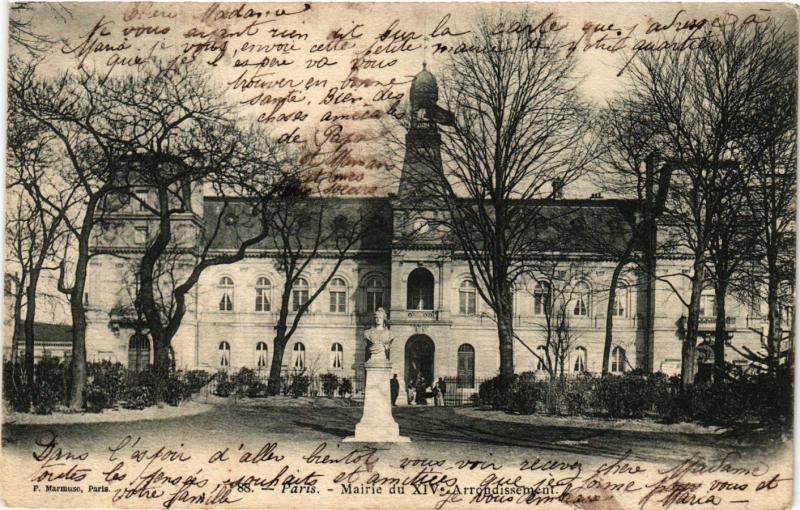 Chère Madame
Je vous ayant rien dit sur la carte que j'adresse à
Maria je vous envoie cette petite mairie de votre quartier
que j'espère va vous
trouver en bonne
santé. Bien des
choses amicales
de Papa
et Maman
et mes
Dans l'espoir d'aller bientôt vous voir recevez chère Madame
toutes les pensées souhaits et amitiés que je forme pour vous et
votre famille Je vous embrasse Maria
P. Marmuse, Paris.
88. — Paris. - Mairie du XIVe Arrondissement.